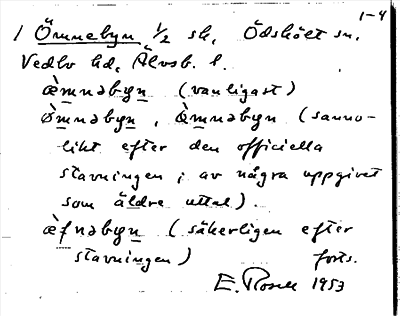 1-4
1 Ömnebyn 1/2 sk, Ödskölt sn,
Vedbo hd, Älvsb. l.
æ̀mnəbyn (vanligast)
ø̀mnəbyn, æ̀mnəbyn (sanno-
likt efter den officiella
stavningen; av några uppgivet
som äldre uttal).
æ̀fnəbyn (säkerligen efter
stavningen) forts.
E. Rosell 1953